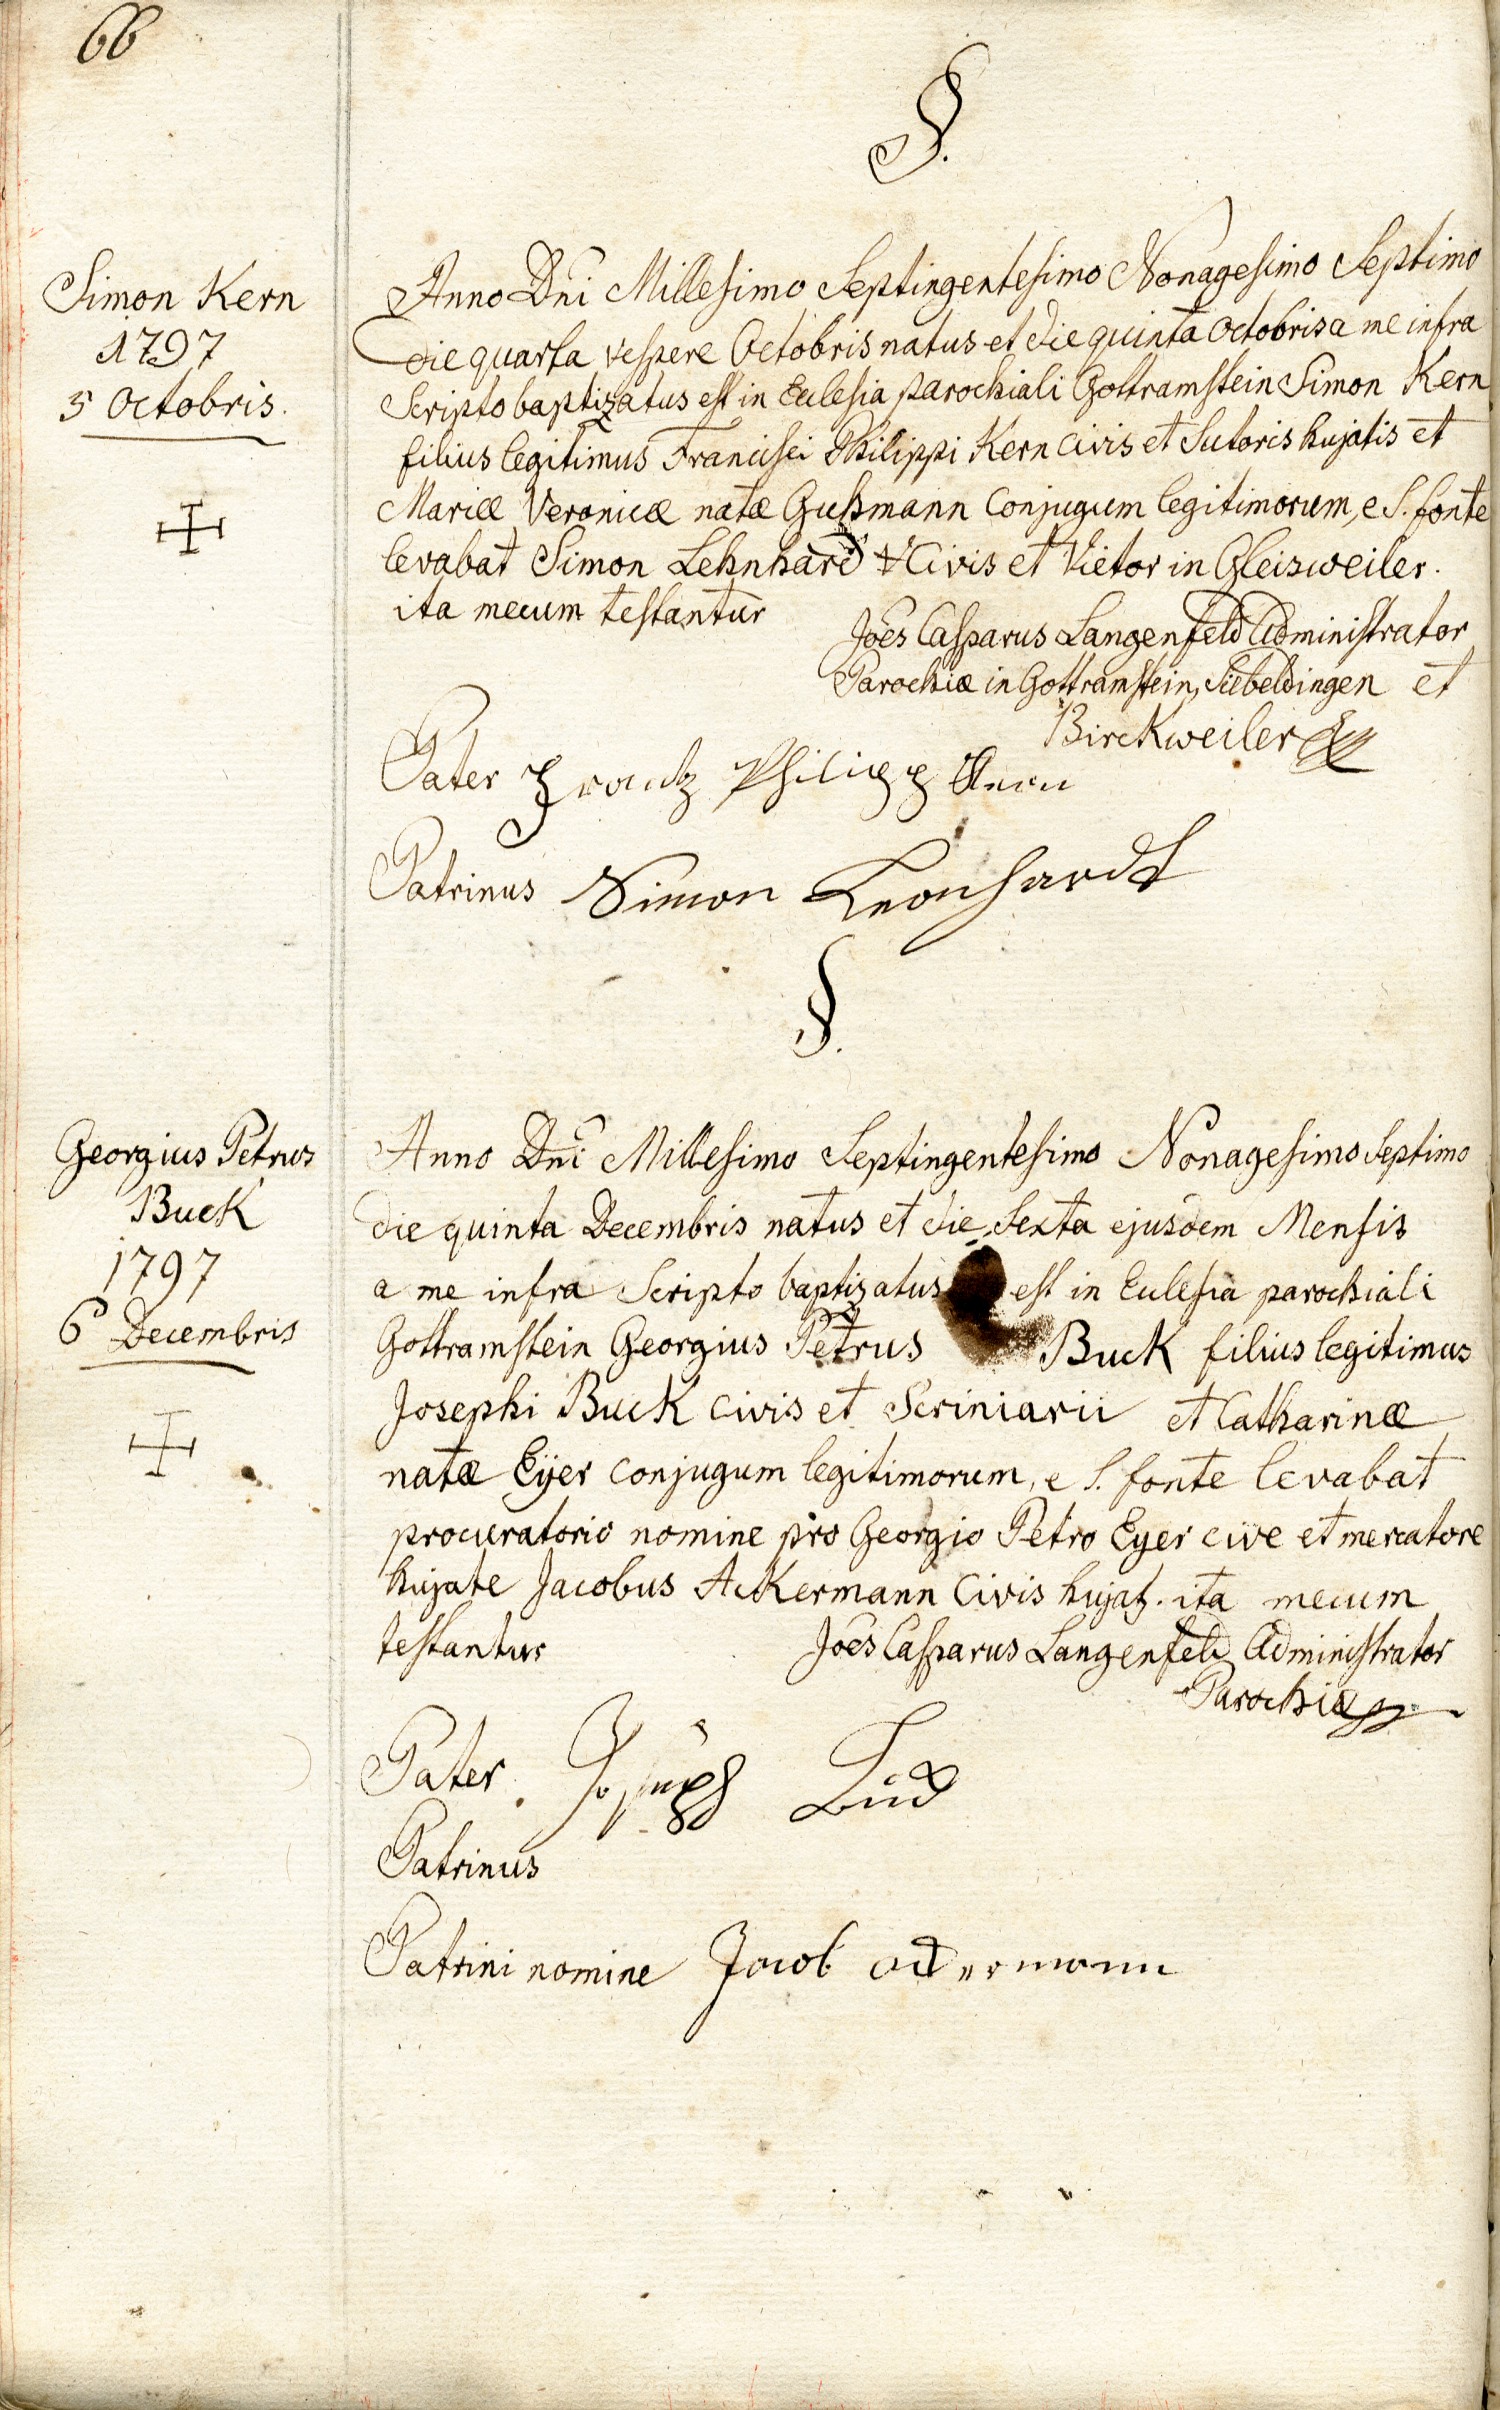 66
§.
Simon Kern
1797
5 Octobris.
Anno Dni Millesimo Septingentesimo Nonagesimo Septimo
die quarta vespere Octobris natus et die quinta Octobris a me infra
Scripto baptizatus est in Ecclesia parochiali Gottramstein Simon Kern
filius legitimus Francisci Philippi Kern civis et Sutoris hujatis et
Mariæ Veronicæ natæ Gußmann Conjugum legitimorum, e S. fonte
levabat Simon Lehnhard Civis et Vietor in Gleisweiler.
ita mecum testantur
Joês Casparus Langenfeld Administrator
Parochiæ in Gottramstein, Siebeldingen et
Birckweiler
Pater Frantz Philipp Kern
Patrinus Simon Leonhardt
§.
Georgius Petrus
Buck
1797
6 Decembris
Anno Dni Millesimo Septingentesimo Nonagesimo Septimo
die quinta Decembris natus et die Sexta ejusdem Mensis
a me infra Scripto baptizatus est in Ecclesia parochiali
Gottramstein Georgius Petrus Buck filius legitimus
Josephi Buck civis et Scriniarii et Catharinæ
natæ Eÿer conjugum legitimorum, e S. fonte levabat
procuratorio nomine pro Georgio Petro Eyer cive et mercatore
hujate Jacobus Ackermann Civis hujat. ita mecum
testantur
Joês Casparus Langenfeld Administrator
Parochiæ
Pater Joseph Buck
Patrinus
Patrini nomine Jacob Ackermann